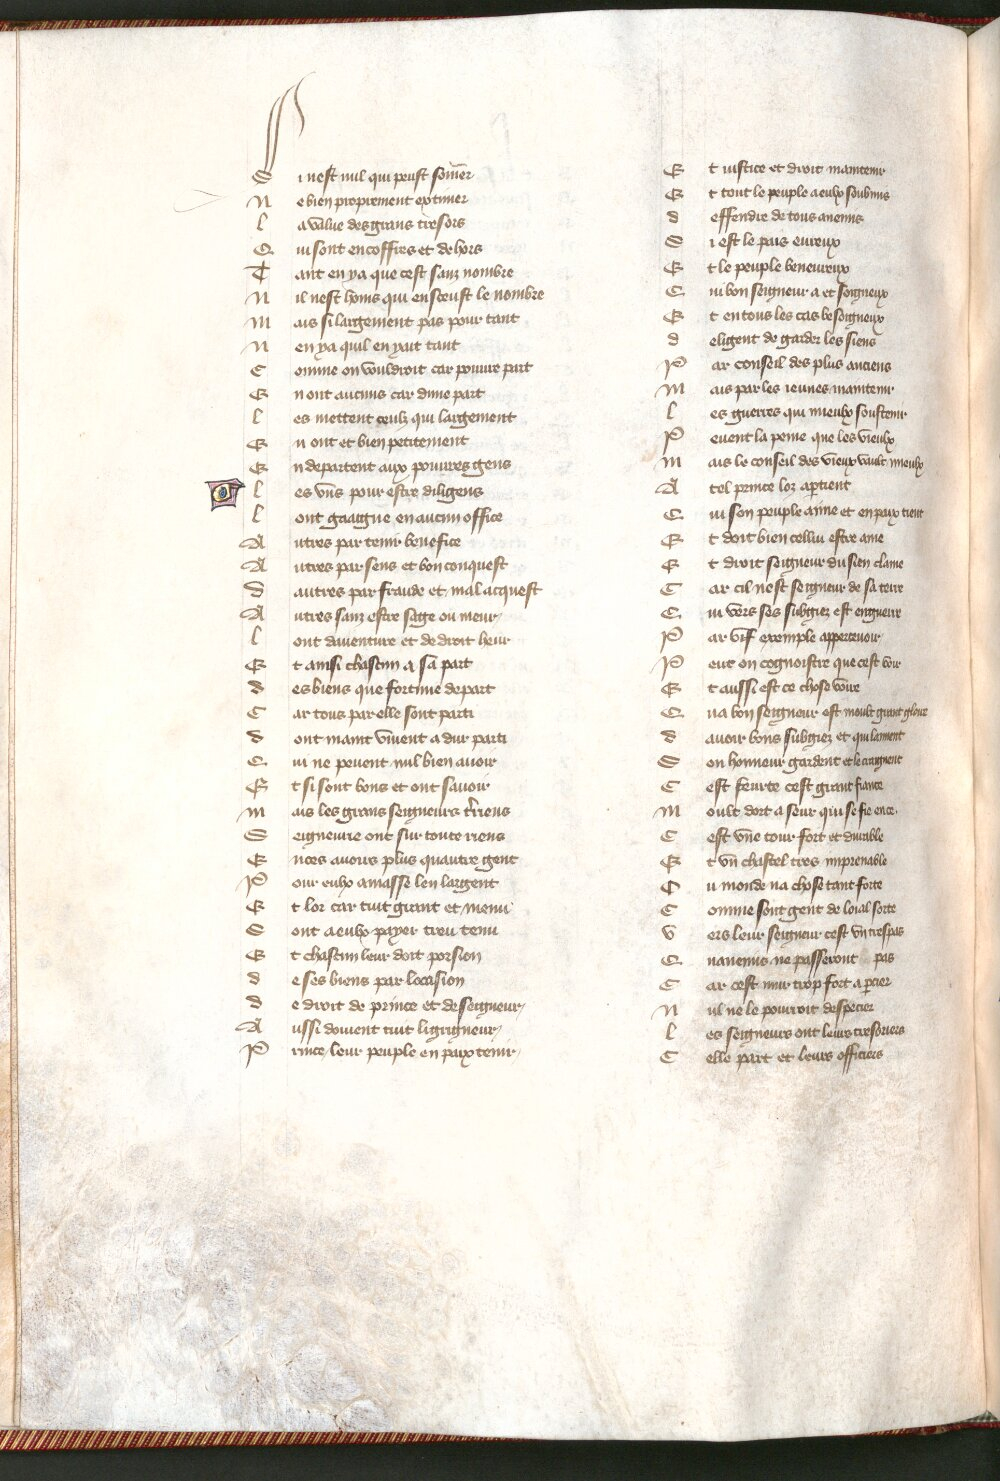 Si nest nul qui peust som̄er
Ne bien proprement extimer
La value des grans tresors
Qui sont en coffres et dehors
Tant en ya que cest sanz nombre
Nil nest homs qui en sceust le nombre
Mais si largement pas pour tant
Nen ya quil en yait tant
Comme on vouldroit car povure part
En ont aucuns car dune part
Les mettent ceulx qui largement
En ont et bien petitement
En departent aux povures gens
Les vns pour estre diligens
Lont gaaigne en aucun office
Autres par tenir benefice
Autres par sens et bon conquest
Dautres par fraude et mal acquest
Autres sanz estre sage ou meur
Lont daventure et de droit heur
Et ainsi chascun a sa part
Des biens que fortune depart
Car tous par elle sont parti
Dont maint vivent a dur parti
Qui ne pevent nul bien avoir
Et si sont bons et ont savoir
Mais les grans seigneurs t̄riens
Seigneurie ont sur toute riens
En ces avoirs plus quautre gent
Pour eulx amasse len largent
Et lor car tuit grant et menu
Sont a eulx payer treu tenu
Et chascun leur doit porsion
De ses biens par locasion
De droit de prince et de seigneur
Aussi doivent tuit ligrigneur
Prince leur peuple en paix tenir
Et iustice et droit maintenir
Et tout le peuple a eulx soubmis
Deffendre de tous anemis
Si est le pais eureux
Et le peuple beneureux
Qui bon seigneur a et soigneux
Et en tous les cas besoigneux
Deligent de garder les siens
Par conseil des plus anciens
Mais par les ieunes maintenir
Les guerres qui mieulx soustenir
Pevent la peine que les vieulx
Mais le conseil des vieux vault mieulx
A tel prince loz apartient
Qui son peuple aime et en paix tient
Et doit bien cellui estre ame
Et droit seigneur du sien clame
Car cil nest seigneur de sa terre
Qui vers ses subgiez est en guerre
Par vif exemple appertevoir
Peut on cognoistre que cest voir
Et aussi est ce chose voire
Qua bon seigneur est moult grant gloire
Davoir bons subgiez et qui lament
Son honneur gardent et le craignent
Cest seurte cest grant fiance
Moult dort a seur qui se fie en ce
Cest vne tour fort et durable
Et vn chastel tres imprenable
Qu monde na chose tant forte
Comme sont gent de loial sorte
Vers leur seigneur cest vn trespas
Quanemis ne passeront pas
Car cest mur trop fort a percier
Nul ne le pourroit despecier
Les seigneurs ont leurs tresoriers
Celle part et leurs officiers